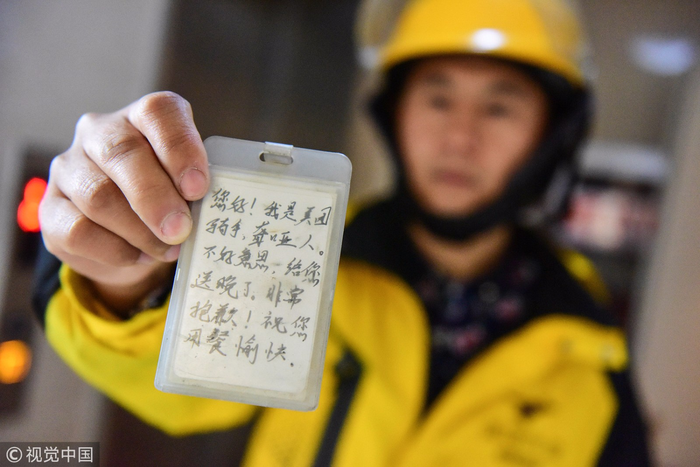 您好！我是美团
骑手，聋哑人。
不好意思，给您
送晚了。非常
抱歉！祝您
用餐愉快。
©视觉中国